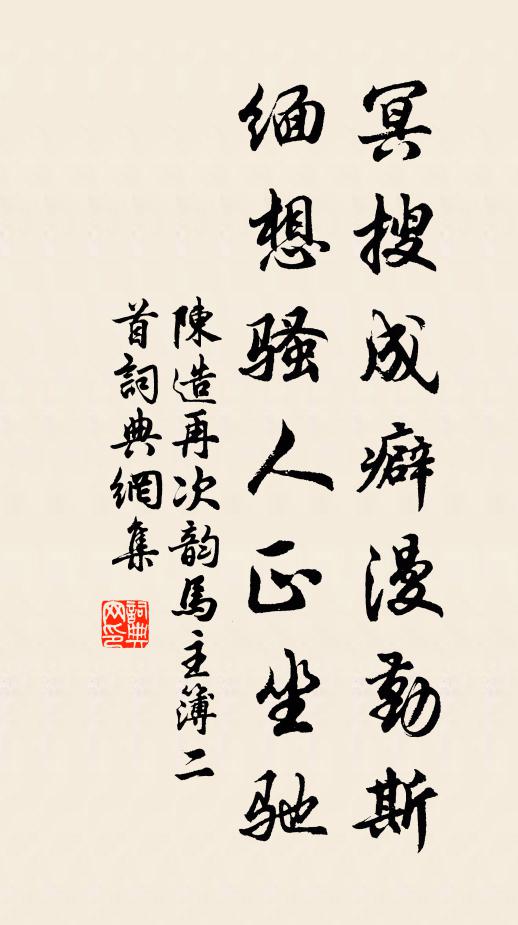 冥搜成癖漫勤斯
缅想骚人正坐驰
陳造再次韵馬主簿二
首詞典網集
詞典
网印